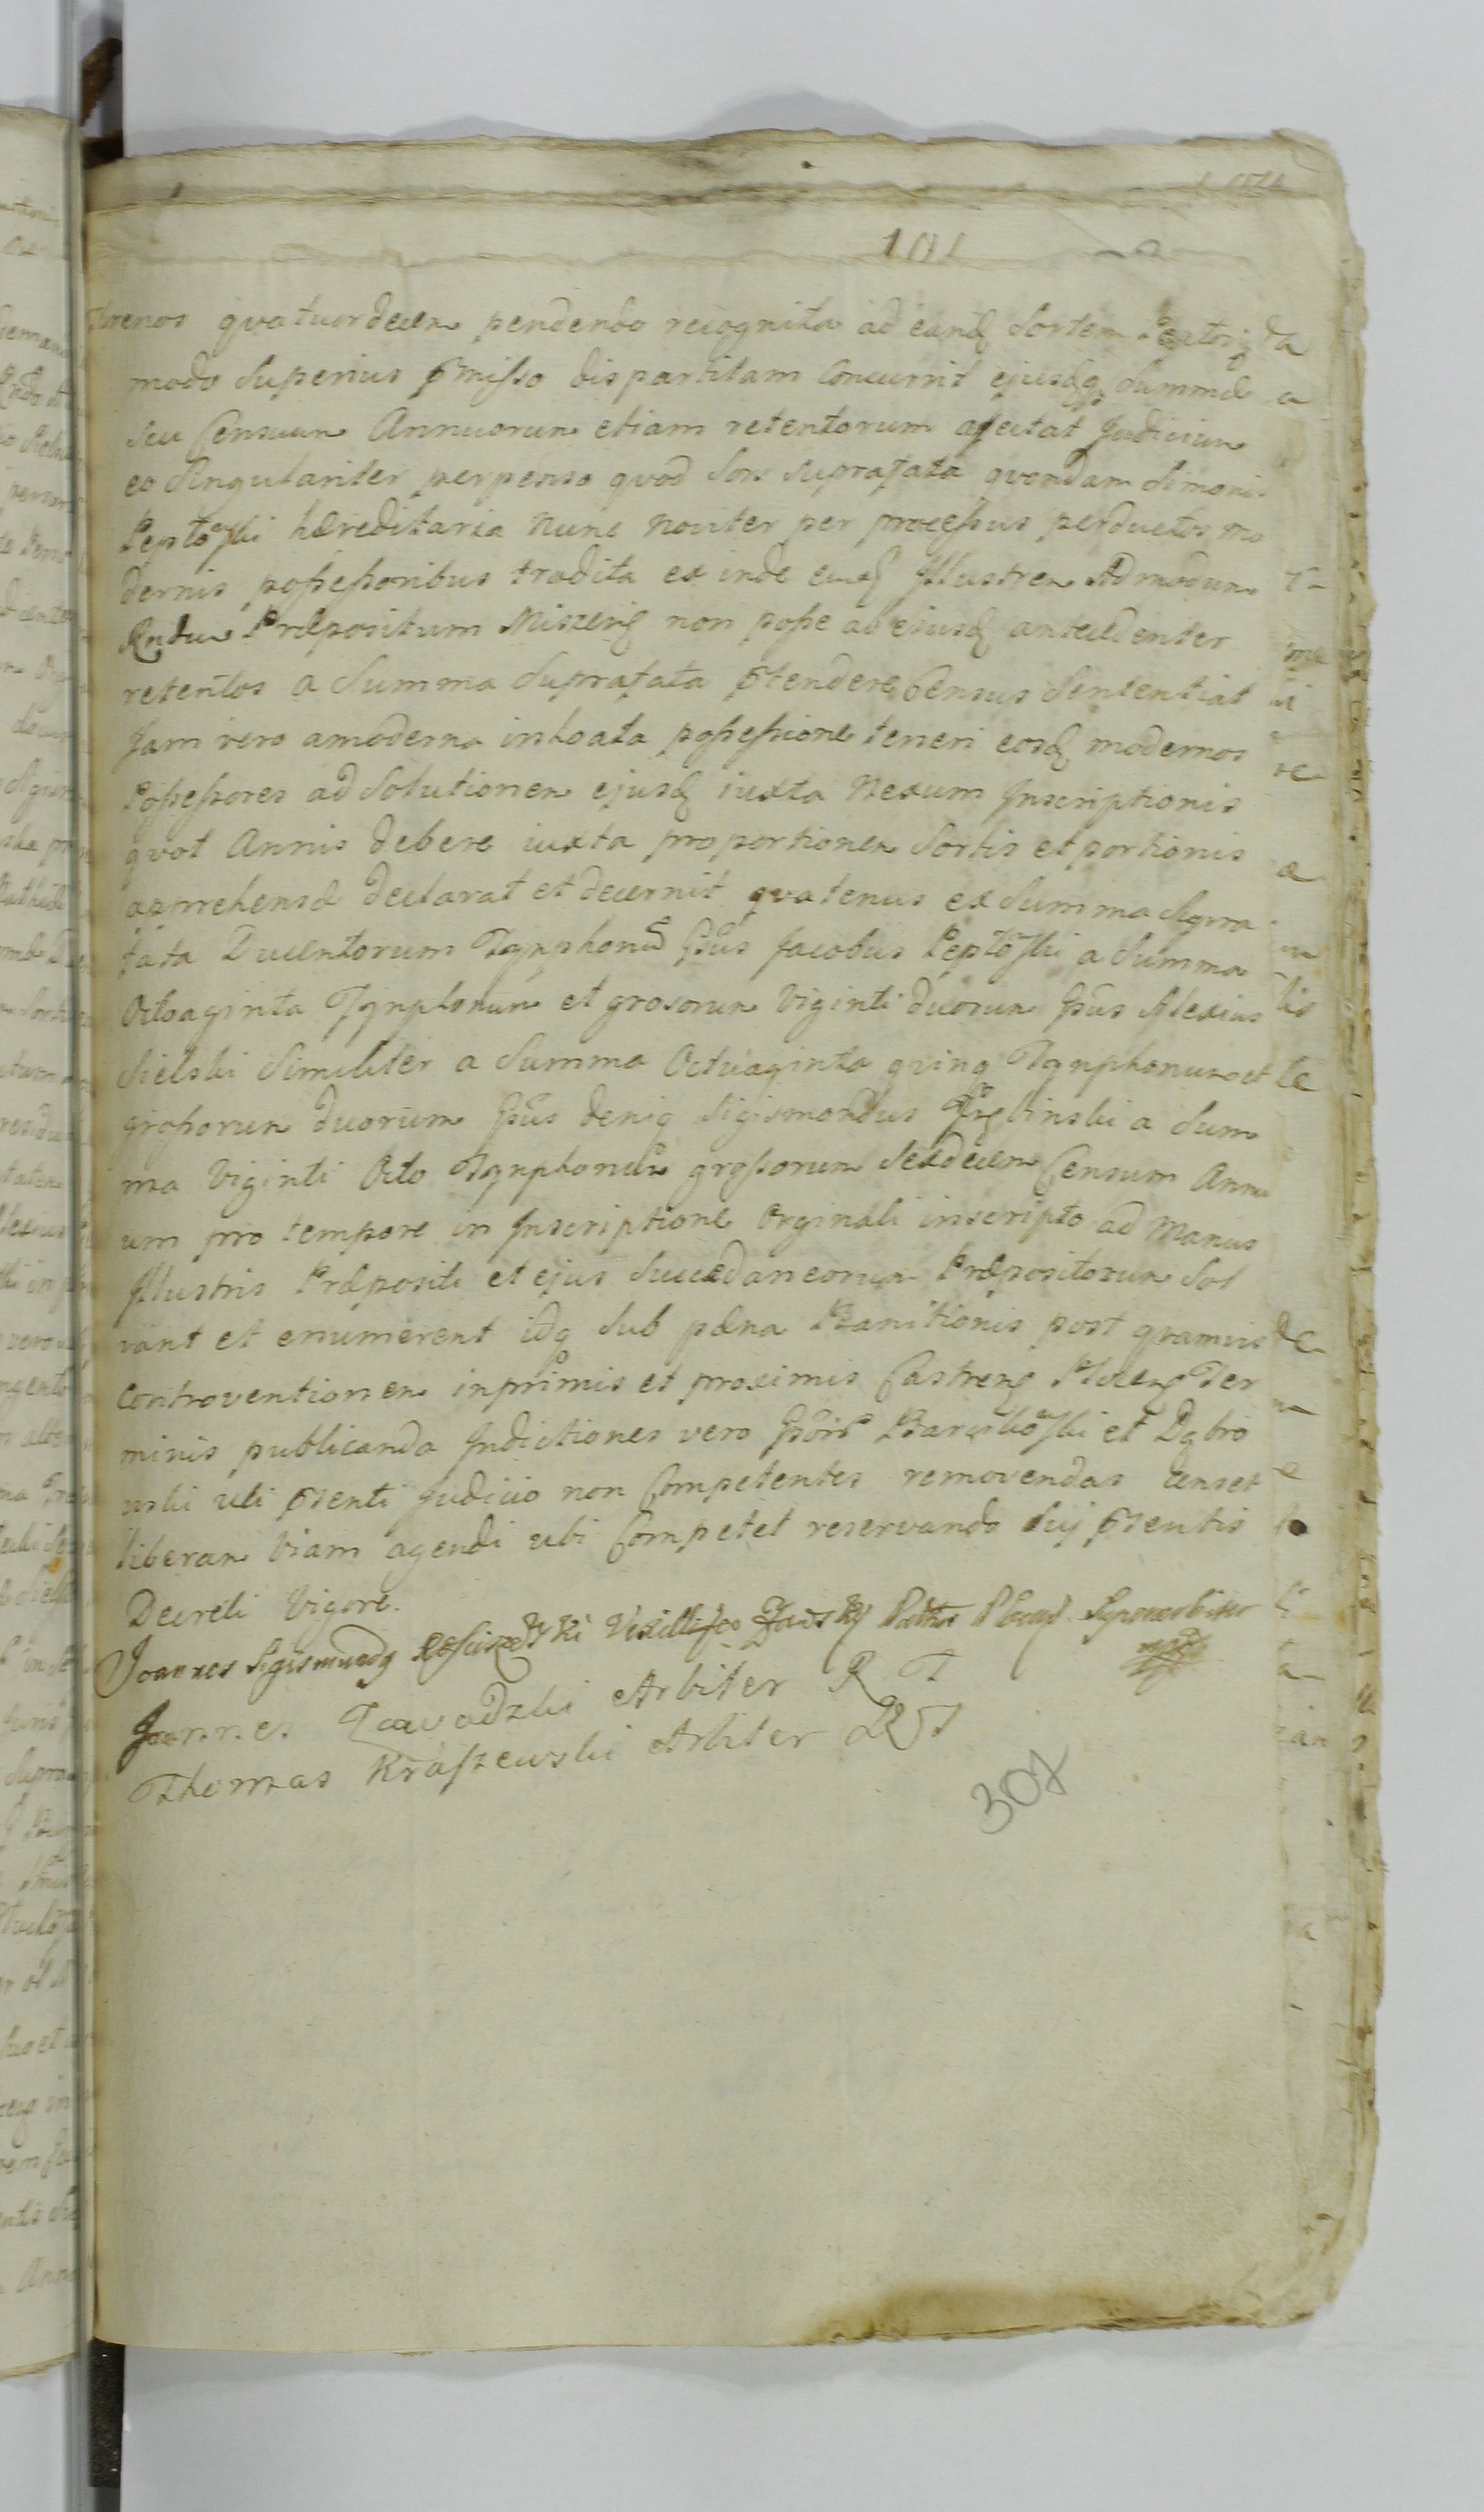 101
florenos qvatuordecem pendendo recognita ad eand sortem
modo superius pmisso dispartitam concurrit ejusdq summæ
seu Censuum Annuorum etiam retentorum afectat Judicium
eo Singulariter perpenso qvod Sors supratata qvondam Simonis
Peptoski hæreditaria nunc noviter per processus perductos mo
dernis possessoribus tradita ex inde eund Illustrem Admodum
Rndum Præpositum Miszen non posse ad ejusd antecedenter
retentos a Summa Supratata ptendere Census Sententiat
Jam vero a moderna inchoata possessione teneri eosd modernos
Possessores ad Solutionem ejusd iuxta Nexum Inscriptionis
qvot Annis debere iuxta proportionem Sortis et portionis
apprehensæ declarat et decernit qvatenus ex Summa Supra
tata Ducentorum Tynphonu Gsus Jacobus Peptoski a Summa
Octoaginta Tynphonum et grosorum Viginti duorum Gsus Alexius
Sielski Similiter a Summa Octuaginta qving Tynphonum et
grossorum duorum Gsus deniq Sigismondus a Sum
ma Viginti Octo Tynphonum grossorum Sexdecem Censum Annu
um pro tempore in Inscriptione Orginali inscripto ad Manus
Illustris Præpositi et ejus Succedaneorum Præpositorum Sol
vant et enumerent idq Sub pæna Banitionis post qvamvis
Controventionem inprimis et proximis Castren Plocen Ter
minis publicanda Indictiones vero Gsoru et Dąbro
wski uti psenti Judicio non Competentes removendas censet
liberam Viam agendi ubi Competet reservando Sui psentis
Decreti Vigore.
Joannes Sigismundq Vexillifer Pattus Plocen Superarbiter
mpp
Joannes Zawadzki Arbiter R T
Thomas Kraszewski Arbiter
307